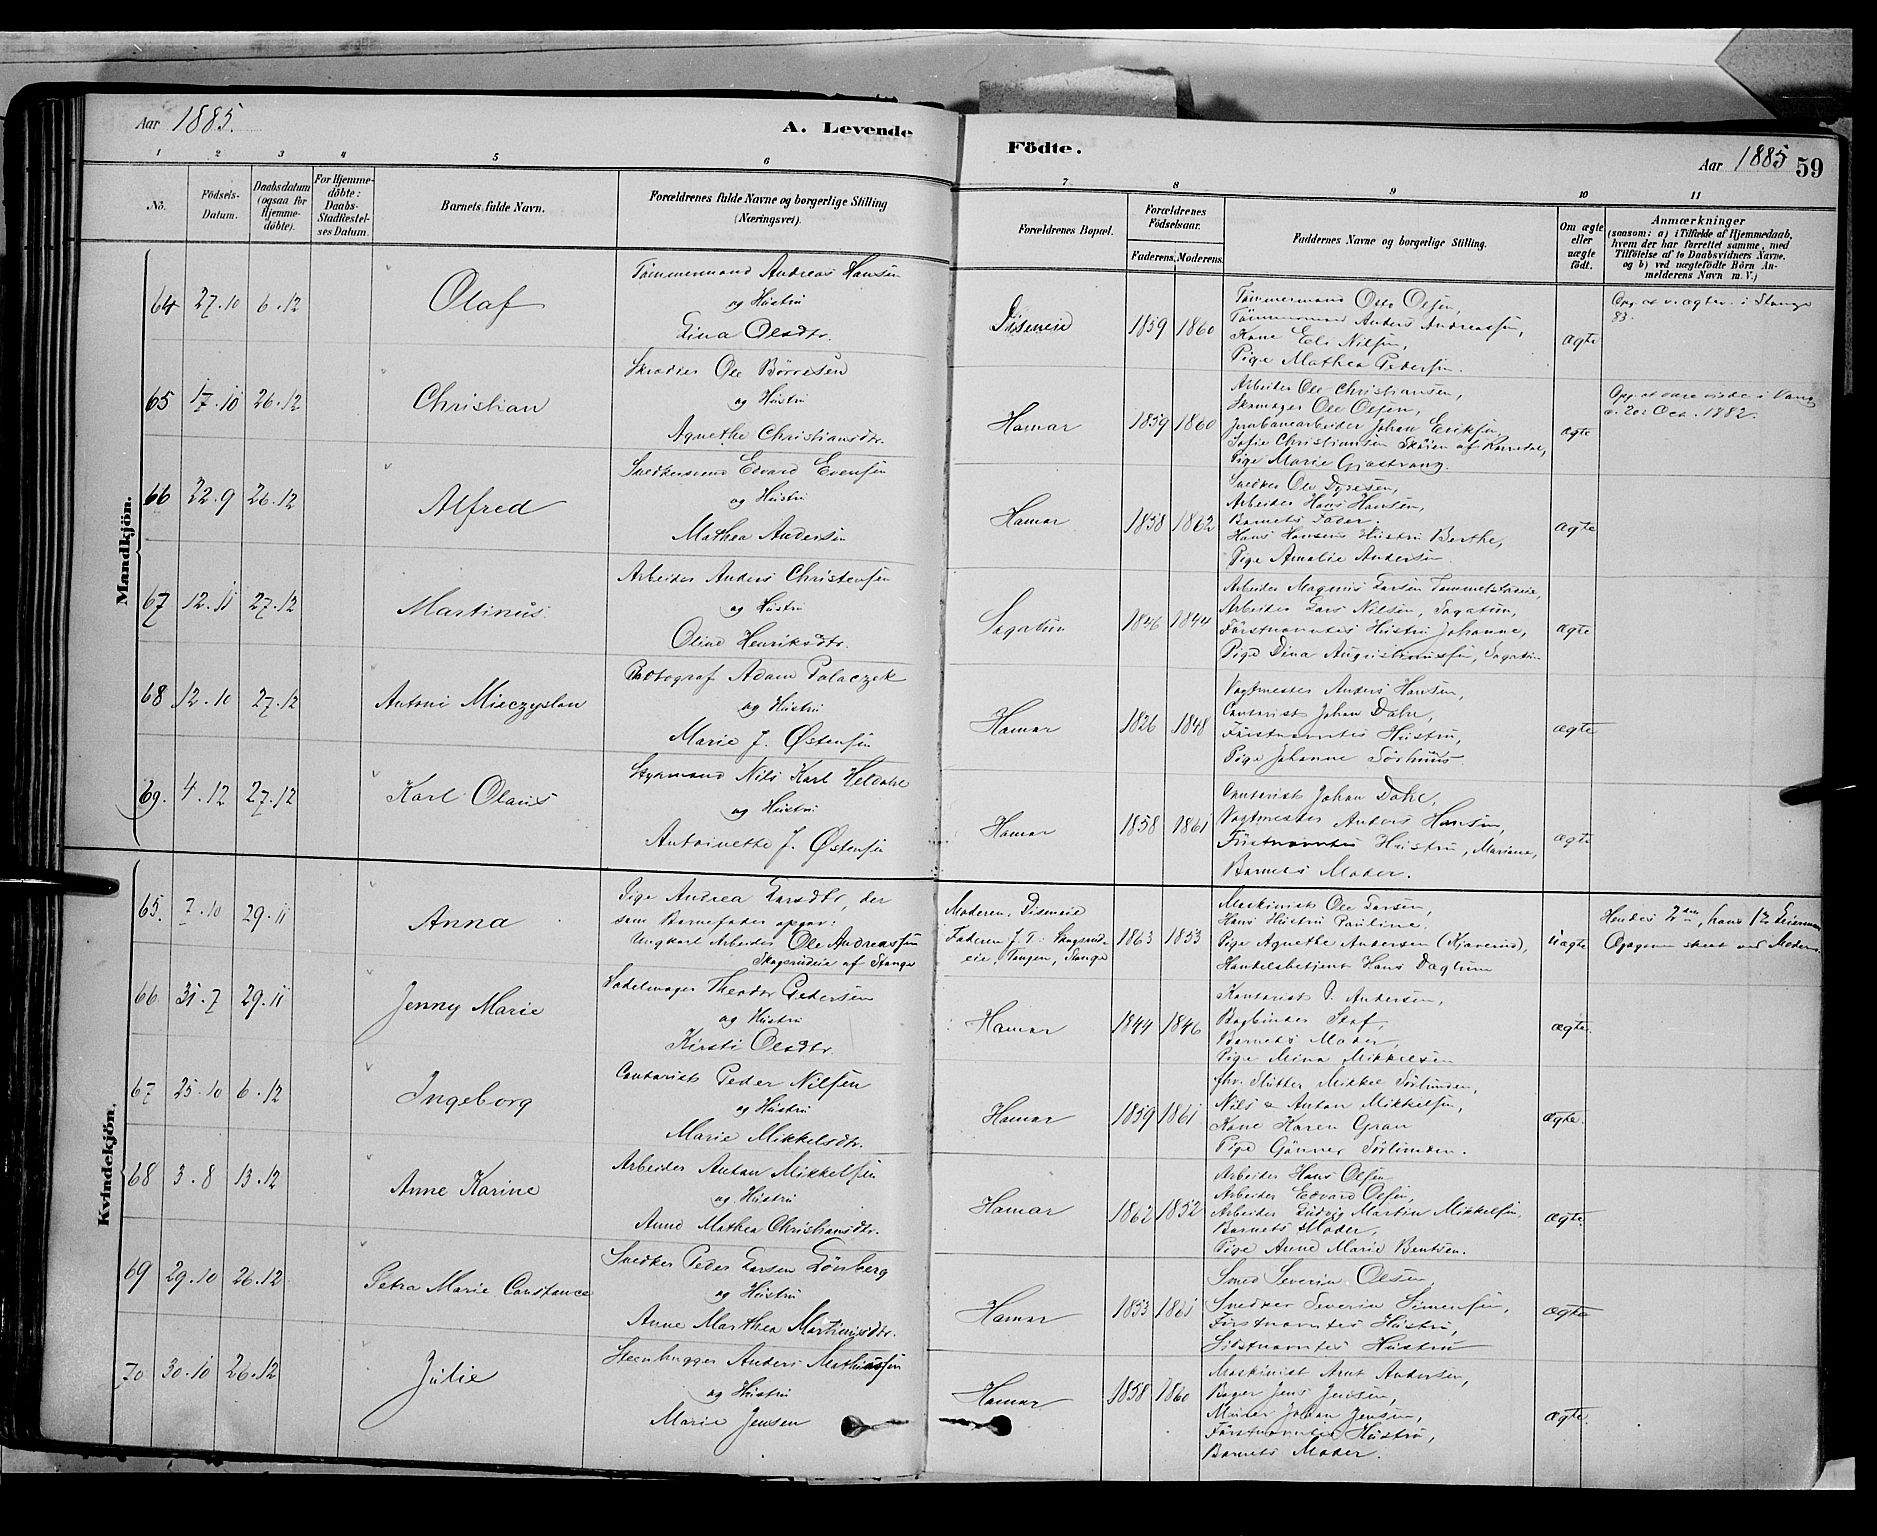 Aar 1885.
A. Levende
Födte.
Aar 1885
59
1
2
3
4
5
6
7
8
9
10
11
No.
Födsels-
Datum.
Daabsdatum
(ogsaa for
Hjemme-
döbte).
For Hjemme-
döbte:
Daabs-
Stadfæstel-
ses Datum.
Barnets fulde Navn.
Forældrenes fulde Navne og borgerlige Stilling
(Næringsvei).
Forældrenes Bopæl.
Forældrenes
Födselsaar.
Faderens.
Moderens.
Faddernes Navne og borgerlige Stilling.
Om ægte
eller
uægte
födt.
Anmærkninger
(saasom: a) i Tilfælde af Hjemmedaab,
hvem der har forrettet samme, med
Tilföielse af to Daabsvidners Navne.
og b) ved uægtefödte Börn An-
melderens Navn m. V.)
Mandkjön.
64 27.10 6.12
Olaf
Tømmermand Andreas Hansen
og Hustru
Lina Olsdtr.
Diseneie
1859 1860
Tømmermand Ole Olsen,
Tømmermand Anders Andreassen,
Kone Eli Nilsen,
Pige Mathea Pedersen.
ægte
Opg. at v. ægtev. i Stange
83.
65 17.10 26.12
Christian
Skrædder Ole Børresen
og Hustru
Agnethe Christiansdtr.
Hamar
1859 1860
Arbeider Ole Christiansen,
Skomager Ole Olsen,
Jernbanearbeider Johan Eriksen,
Sofie Christiansen Skåren af Romedal,
Pige Marie Gjøstvang.
ægte
Opg. at være viede i Vang
d. 20: Oct. 1882.
66 22.9 26.12
Alfred
Snedkersvend Edvard Evensen
og Hustru
Mathea Andersen
Hamar
1858 1862
Snedker Ole Dyresen,
Arbeider Hans Hansen,
Barnets Fader.
Hans Hansens Hustru Berthe,
Pige Amalie Andersen
ægte
67 12.11 27.12
Martinus.
Arbeider Anders Christensen
og Hustru
Oline Henriksdtr.
Sagatun
1846 1844
Arbeider Magnus Larsen
Arbeider Lars Nilsen, Sagatun,
Førstnævntes Hustru Johanne,
Pige Dina Augustinussen, Sagatun
ægte
68 12.10 27.12
Antoni Mieczyslan
Photograf Adam Palaczek
og Hustru
Marie J. Østensen
Hamar
1826 1848
Vagtmester Anders Hansen,
Contorist Johan Dahl,
Førstnævntes Hustru,
Pige Johanne Sørhuus
ægte
69. 4.12 27.12
Karl Olaus
Styrmand Nils Karl Heldahl
og Hustru
Antoinette J. Østensen
Hamar
1858 1861
Contorist Johan Dahl,
Vagtmester Anders Hansen,
Førstnævntes Hustru, Mariane,
Barnets Moder.
ægte
Kvindekjön.
65. 7.10 29.11
Anna
Pige Andrea Larsdtr, der
som Barnefader opgav:
Ungkarl Arbeider Ole Andreassen
Skogsrudeie af Stange
Moderen: Diseneie
Faderen f. T: Skogsrud-
eie, Tangen, Stange
1863 1853
Maskinist Ole Larsen,
Hans Hustru Pauline,
Pige Agnethe Andersen (Kjøverud),
Handelsbetjent Hans Daglum
uægte
Hendes 2den, hans 1ste Leiermaal
Opgaven skeet ved Moderen.
66 31.7 29.11
Jenny Marie
Sadelmager Theodor Pedersen
og Hustru
Kirsti Olsdtr.
Hamar
1844 1846
Kontorist P. Andersen,
Bogbinder Staf,
Barnets Moder,
Pige Mina Mikkelsen
ægte.
67 25.10 6.12
Ingeborg
Contorist Peder Nilsen
og Hustru
Marie Mikkelsdtr.
Hamar
1859 1861
fhv. Slutter Mikkel Sørlunden,
Nils & Anton Mikkelsen,
Kone Karen Gran
Pige Gunner Sørlunden.
ægte.
68 3.8 13.12
Anne Karine
Arbeider Anton Mikkelsen
og Hustru
Anne Mathea Christiansdtr.
Hamar
1862 1852
Arbeider Hans Olsen
Arbeider Edvard Olsen,
Arbeider Ludvig Martin Mikkelsen,
Barnets Moder,
Pige Anne Marie Bentsen.
ægte
69 29.10 26.12
Petra Marie Constance
Snedker Peder Larsen Lønberg
og Hustru
Anne Marthea Martinusdtr.
Hamar
1853 1861
Smed Severin Olsen,
Snedker Severin Simensen,
Førstnævntes Hustru,
Sidstnævntes Hustru
ægte
70 30.10 26.12
Julie
Steenhugger Anders Mathiassen
og Hustru
Marie Jensen
Hamar
1858 1860
Maskinist Arnt Andersen,
Bager Jens Jensen,
Murer Johan Jensen,
Førstnævntes Hustru,
Barnets Moder.
ægte.